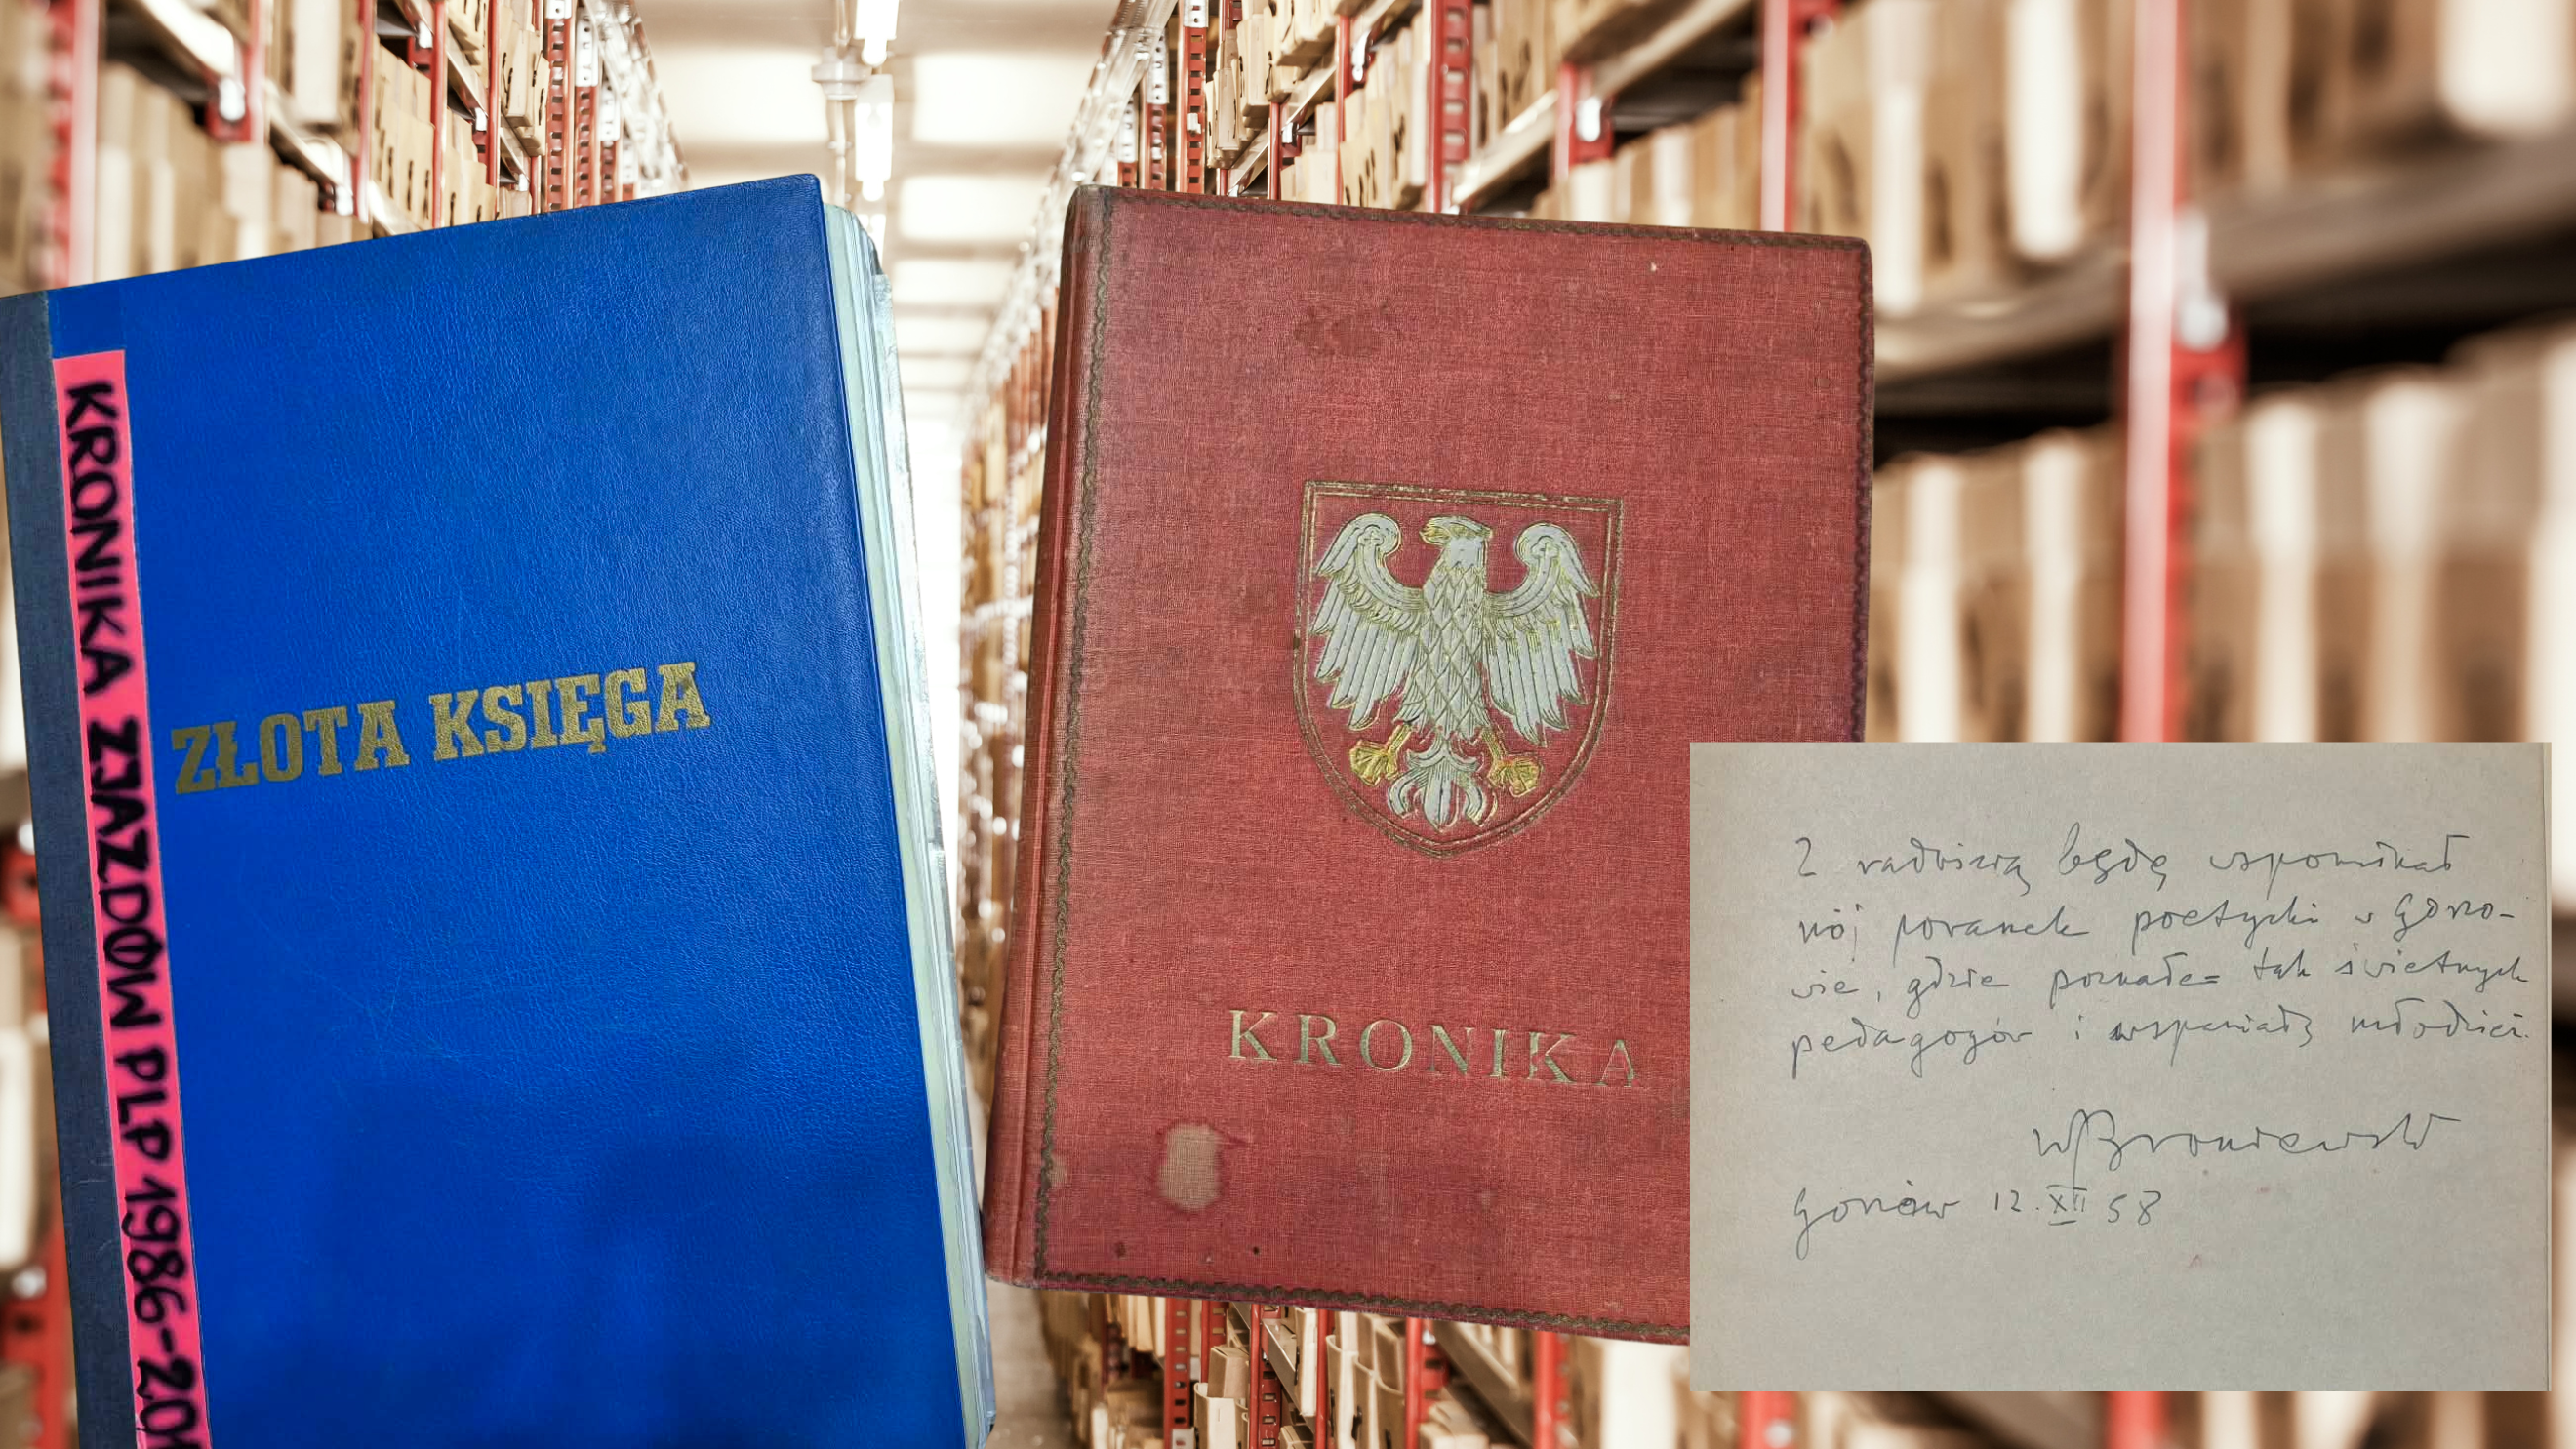 KRONIKA ZJAZDÓW PLP 1986-201
ZŁOTA KSIĘGA
KRONIKA
Z radością będę wspominał
mój poranek poetycki w Gorzo-
wie, gdzie poznałem tak świetnych
pedagogów i wspaniałą młodzież.
WBroniewski
Gorzów 12.XII 58